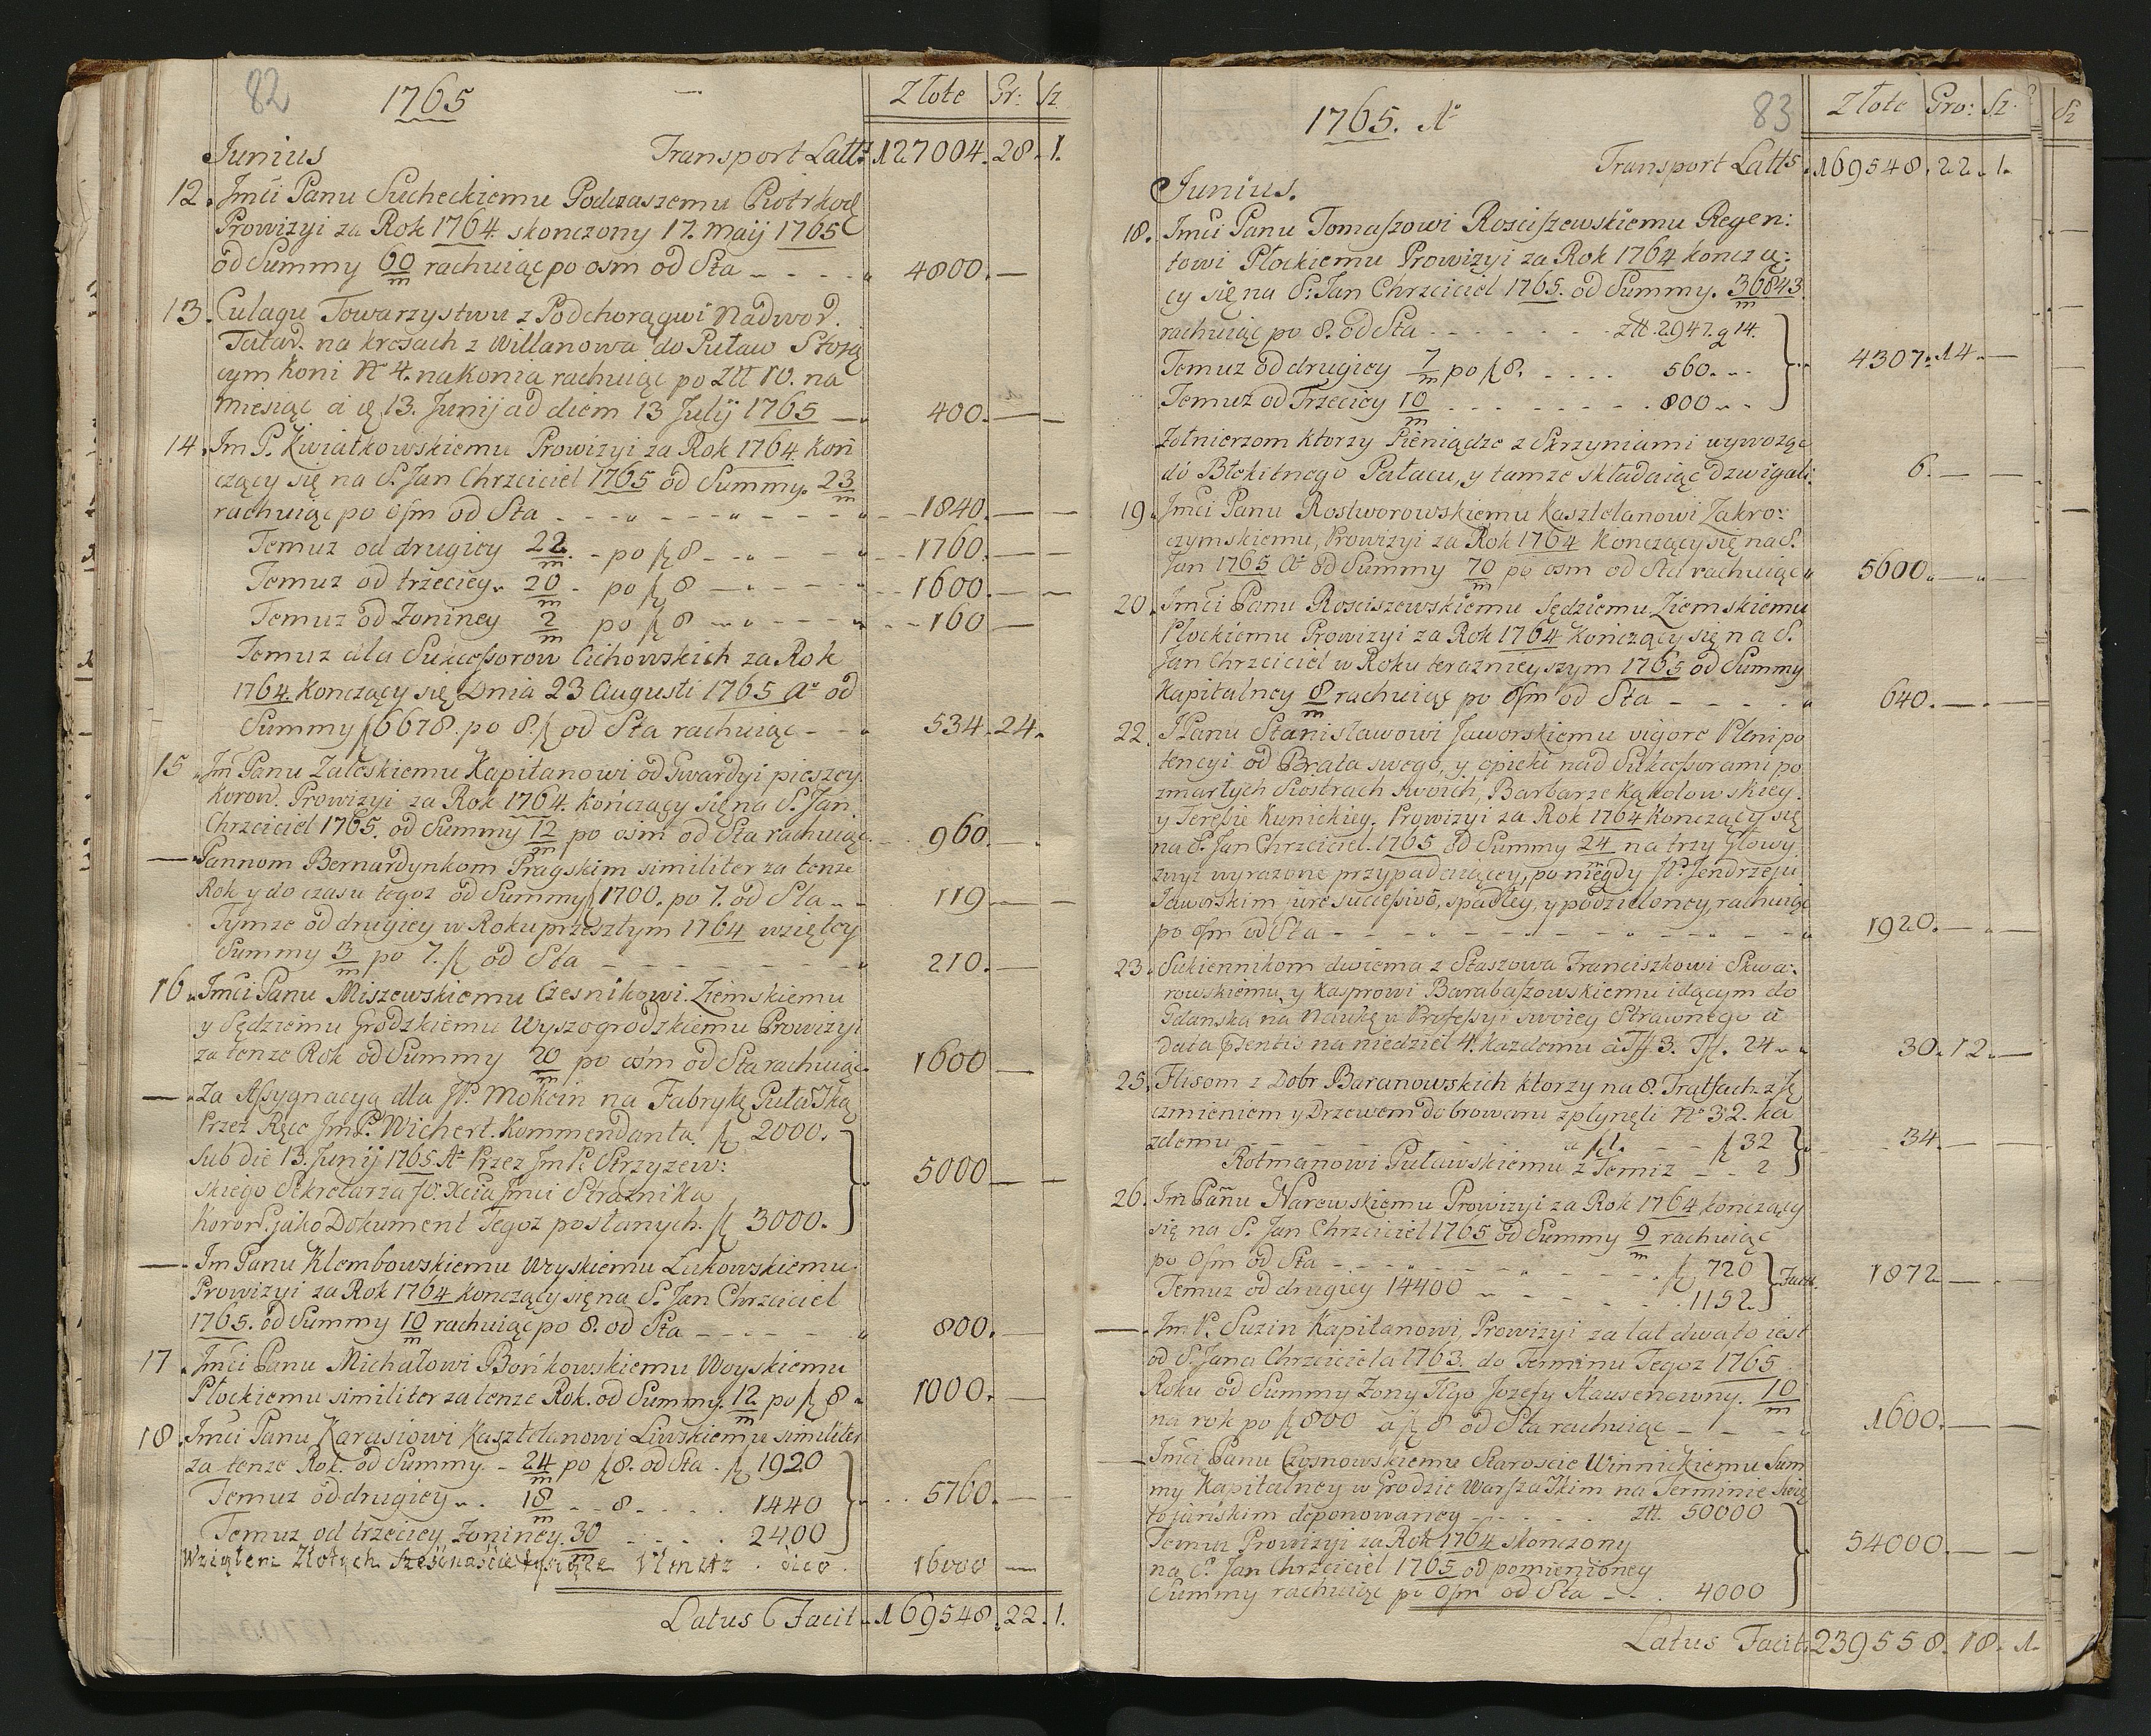 82
1765
Złote Gr: Sz
Junius Transport Latt: 127004. 28. 1.
12. Jmći Panu Sucheckiemu Podczaszemu Piotrkow
Prowizyi za Rok 1764. skonczony 17. Maij 1765
od Summy 60/m rachuiąc po osm od Sta 4800.
13. Culagu Towarzystwu z Podchorągwi Nadwor.
Tatar. na kresach z Willanowa do Puław Stoią
cym Koni No 4. na Konia rachuiąc po Ztt 10. na
Miesiąc a 13. Junij ad diem 13 Julij 1765 400.
14. Jm P. Kwiatkowskiemu Prowizyi za Rok 1764 Koń
czący się na S. Jan Chrzciciel 1765 od Summy. 23/m
rachuiąc po Osm od Sta 1840.
Temuz od drugiey 22/m - po 8 1760.
Temuz od trzeciey. 20/m - po 8 1600.
Temuz od Zoniney 2/m po 8 160
Temuz dla Sukcessorow Cichowskich za Rok
1764. Konczący się Dnia 23 Augusti 1765 Ao od
Summy 6678. po 8. od Sta rachuiąc 534. 24.
15. Jm Panu Zaleskiemu Kapitanowi od Gwardyi pieszey
Koron. Prowizyi za Rok 1764. Kończący się na S. Jan
Chrzciciel 1765. od Summy 12/m po osim od Sta rachuiąc. 960.
Pannom Bernardynkom Pragskim similiter za tenze
Rok y do czasu tegoz od Summy 1700. po 7. od Sta 119
Tymze od drugiey w Roku przeszłym 1764 wziętey
Summy 3/m po 7. od Sta 210.
16. Jmći Panu Miszewskiemu Czesnikowi Ziemskiemu
y Sędziemu Grodzkiemu Wyszogrodzkiemu Prowizyi
za tenze Rok od Summy 20/m po osm od Sta rachuiąc. 1600
Za Assygnacyą dla JP. Mokcin na Fabrykę Puławską
Przez Ręce JmP. Wichert. Kommendanta. 2000.
Sub die 13. Junij 1765. Ao Przez Jm Pa Strzyzew:
skiego Sekretarza JO. Xcia Jmći Straznika 5000
Koron. jako Dokument Tegoz posłanych. 3000.
Jm Panu Klembowskiemu Wyskiemu Łukowskiemu
Prowizyi za Rok 1764 Konczący się na S. Jan Chrzciciel
1765. od Summy 10/m rachuiąc po 8. od Sta 800.
17. Jmći Panu Michałowi Bońkowskiemu Woyskiemu
Płockiemu similiter za tenze Rok. od Summy. 12/m po 8 1000.
18. Jmći Panu Karasiowi Kasztelanowi Liwskiemu similiter
za tenze Rok. od Summy. 24/m po 8. od Sta. 1920
Temuz od drugiey. 18/m 8 1440 5760.
Temuz od trzeciey Zoniney. 30/m 2400
Wziąłem Złotych Szesnaście tysięcy 16000
Latus Facit 169548. 22. 1.
83
1765. Ao
Złote Gro: Sz Sz
Transport Latts. 169548. 22. 1.
Junius.
18. Jmći Panu Tomaszowi Rosciszewskiemu Regen:
towi Płockiemu Prowizyi za Rok 1764 koncz ą:
cy się na S: Jan Chrzciciel 1765. od Summy. 36843
rachuiąc po 8. od Sta ztt. 2947. g 14.
Temuz od drugiey 7/m po 8. 560. 4307. 14.
Temuz od Trzeciey 10/m 800
Zołnierzom ktorzy Pieniądze z Skrzyniami wywoząc
do Błękitnego Pałacu, y tamze składaiąc dzwigali. 6.
19. Jmći Panu Rostworowskiemu Kasztelanowi Zakro:
czymskiemu, Prowizyi za Rok 1764 Konczący się na S.
Jan 1765 Ao od Summy 70/m po osm od Sta rachuiąc 5600.
20. Jmći Panu Rosciszewskiemu Sędziemu Ziemskiemu
Płockiemu Prowizyi za Rok 1764 Kończący się na S.
Jan Chrzciciel w Roku teraznieyszym 1765 od Summy
Kapitalney 8/m rachuiąc po Osm od Sta 640.
22. JPanu Stanisławowi Jaworskiemu vigore Plenipo
tencyi od Brata swego, y opieki nad Sukcessorami po
zmarłych Siostrach swoich, Barbarze Kąkolowskiey.
y Teressie Kunickiey. Prowizyi za Rok 1764 Konczący się
na S. Jan Chrzciciel. 1765 od Summy 24/m na trzy Głowy
zwyz wyrazone przypadaiącey, po niegdy JP. Jendrzeju
Jaworskim jure successivo, spadłey, y podzieloney, rachuiąc
po Osm od Sta 1920.
23. Sukiennikom dwiema z Staszowa Franciszkowi Skwa:
rowskiemu, y Kasprowi Barabaszowskiemu idącym do
Gdanska na Naukę u Professyi swoiey Strawnego a
data psentis na niedziel 4. Kazdemu a Tf. 3. Tf. 24 30. 12.
25. Flisom z Dobr Baranowskich ktorzy na 8. Tratfach z
czmieniem y Drzewem dobrowanu zpłynęli No 32. Ka
zdemu a 1. 32 34.
Rotmanowi Puławskiemu z Temiz 2
26. Jm Panu Narewskiemu Prowizyi za Rok 1764 kończący
się na S. Jan Chrzciciel 1765 od Summy 9/m rachuiąc
po Osm od Sta 720 Facit. 1872
Temuz od drugiey 14400 1152.
Jm P. Suzin Kapitanowi, Prowizyi za lat dwa, to iest
od S. Jana Chrzciciela 1763. do Terminu Tegoz 1765.
Roku od Summy Zony JEgo Jozefy Hausenowny. 10/m
na rok po 800 a 8 od Sta rachuiąc 1600.
Jmći Panu Czosnowskiemu Staroscie Winnickiemu Sum
my Kapitalney w Grodzie Warszaskim na Terminie Swię
tojańskim deponowaney ztt. 50000
Temuz Prowizyi za Rok 1764 skonczony 54000.
na S. Jan Chrzciciel 1765 od pomienioney
Summy rachuiąc po Osm od Sta 4000
Latus Facit: 239558. 18. 1.